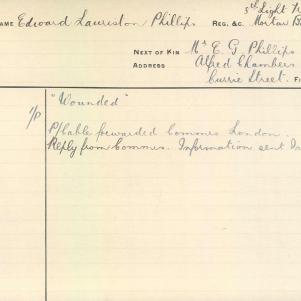 5th Light Tr
NAME Edward Lauriston Phillips REG. &C. Mortar B
NEXT OF KIN Mr E. G. Phillips
ADDRESS Alfred Chambers
Currie Street. F
"Wounded"
P/Cable forwarded Commrs London.
Reply from Commrs. Information sent